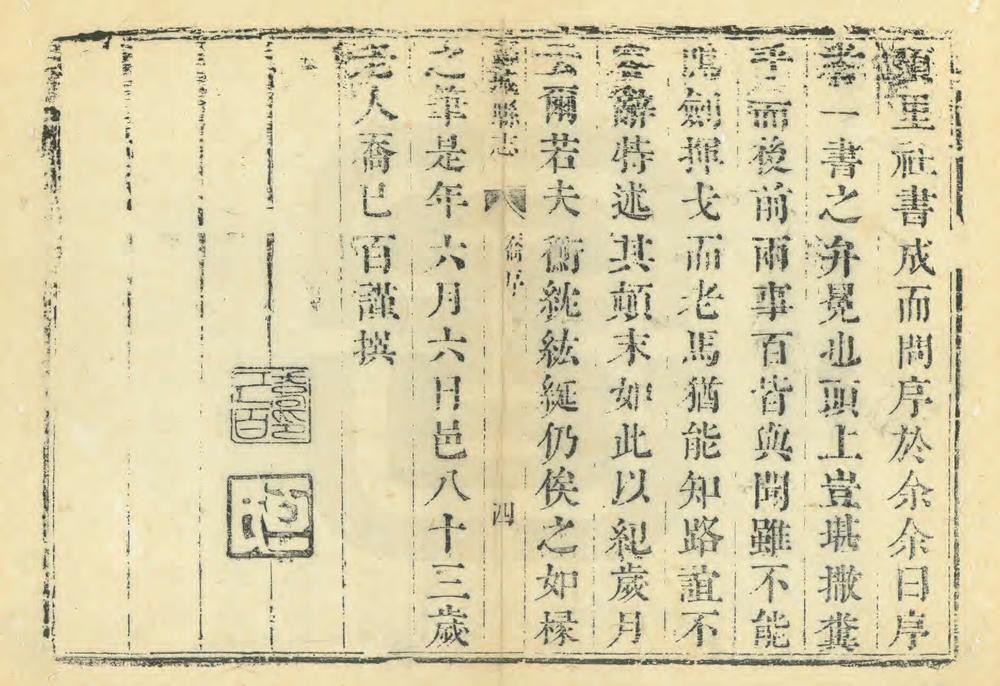 頭里社書成而問序於余余曰序
者一書之弁冕也頭上豈堪撒糞
乎而後前兩事百皆與聞雖不能
鳴劍揮戈而老馬猶能知路誼不
容辭特述其顛末如此以紀歲月
云爾若夫衡紞紘綖仍俟之如椽
縣志
喬序
四
之筆是年六月六日邑八十三歲
老人喬巳百謹撰